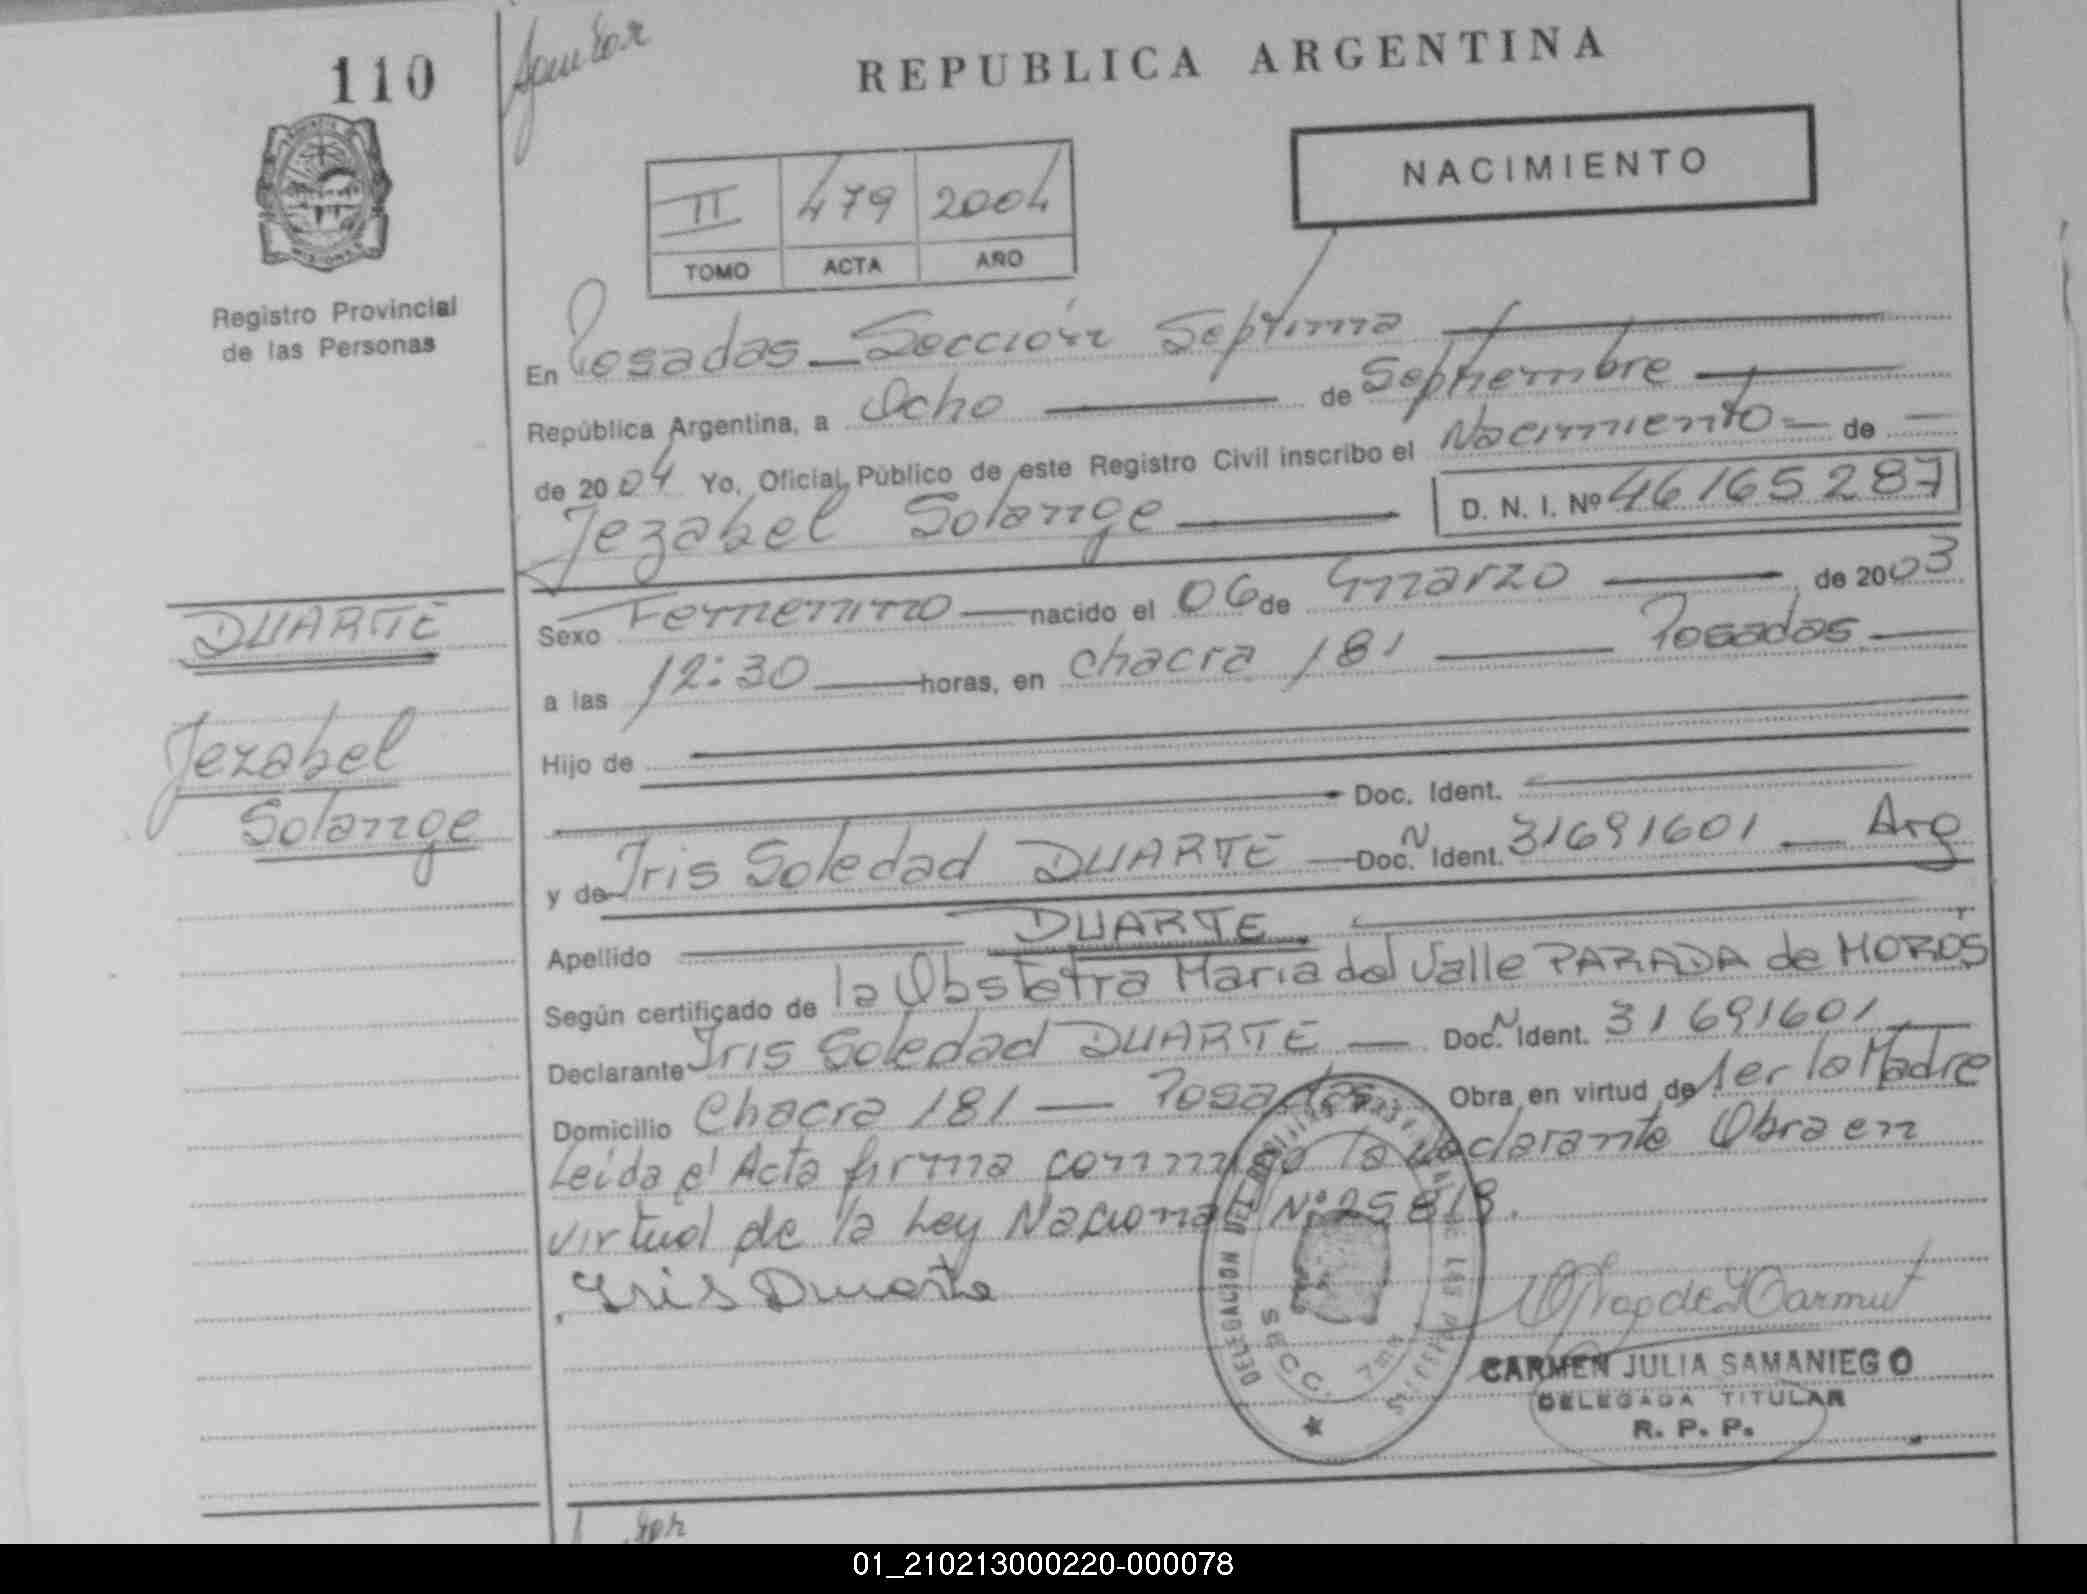 110
REPUBLICA ARGENTINA
NACIMIENTO
II 479 2004
TOMO ACTA AÑO
Registro Provincial
de las Personas
En Posadas - Sección Septima
República Argentina, a Ocho de Septiembre
de 2004 Yo, Oficial Público de este Registro Civil inscribo el Nacimiento de
Jezabel Solange D. N. I. Nº 46165287
DUARTE
Jezabel
Solange
Sexo Femenino nacido el 06 de marzo de 2003
a las 12:30 horas, en chacra 181 Posadas
Hijo de
Doc. Ident.
y de Iris Soledad DUARTE Doc. N Ident. 31691601 Arg
Apellido DUARTE
Según certificado de la Obstetra Maria del Valle PARADA de MOROS
Declarante Iris Soledad DUARTE Doc. N Ident. 31691601
Domicilio Chacra 181 Posadas Obra en virtud de ser la Madre
Leida el Acta firma conmigo la declarante Obra en
virtud de la Ley Nacional Nº 25818.
Iris Duarte
DELEGACION DEL REGISTRO PROVINCIAL DE LAS PERSONAS
SECC. 7ma
CARMEN JULIA SAMANIEGO
DELEGADA TITULAR
R. P. P.
01_210213000220-000078